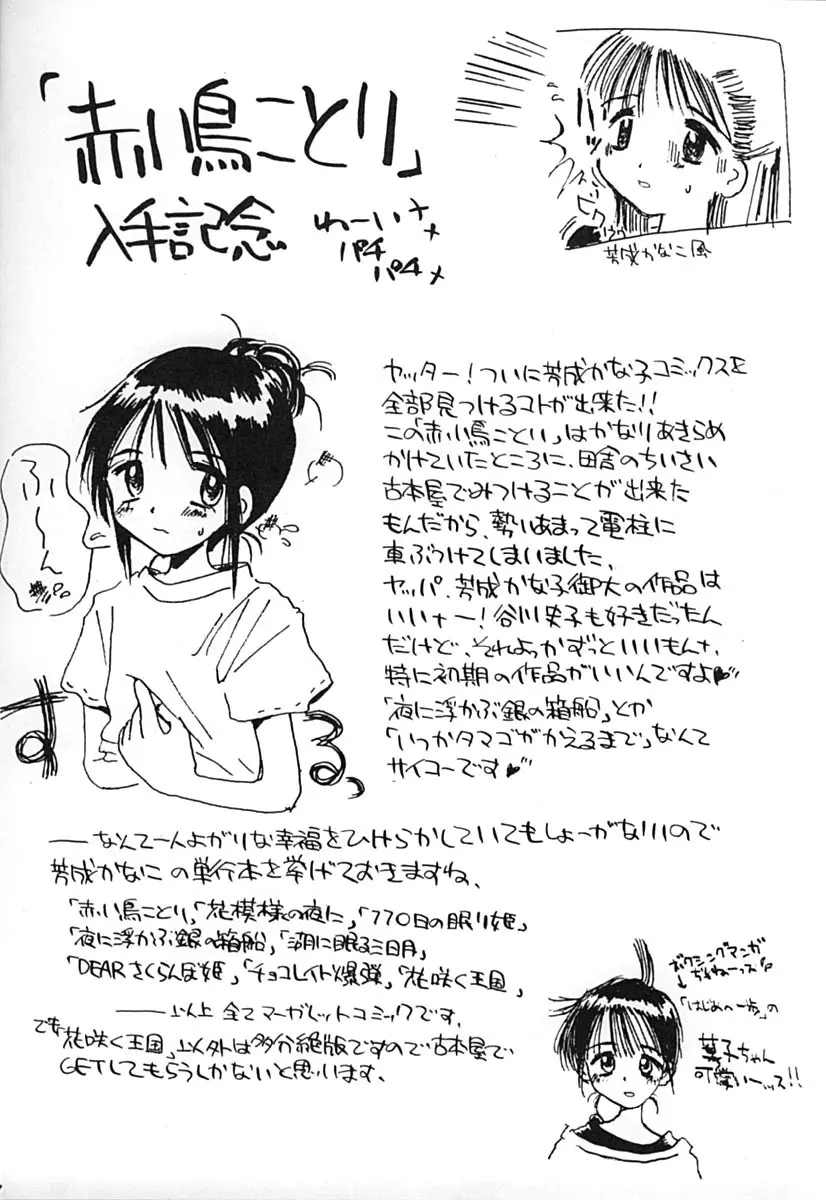 「赤い鳥ことり」
入手記念
わーい
パチ
パチ
芳成かなこ風
ふーん
ヤッター！ついに芳成かな子コミックスを
全部見つけるコトが出来た!!
この「赤い鳥ことり」はかなりあきらめ
かけていたところに、田舎のちいさい
古本屋でみつけることが出来た
もんだから、勢いあまって電柱に
車ぶつけてしまいました、
ヤッパ、芳成かな子御大の作品は
いいナー！谷川史子も好きだったん
だけど、それよっかずっといいもんナ、
特に初期の作品がいいんですよ♥
「夜に浮かぶ銀の箱船」とか
「いつかタマゴがかえるまで」なんて
サイコーです♥
する、
――なんて一人よがりな幸福をひけらかしていてもしょーがないので
芳成かなこの単行本を挙げておきますね、
「赤い鳥ことり」「花模様の夜に」「770日の眠り姫」
「夜に浮かぶ銀の箱船」「湖に眠る三日月」
「DEARさくらんぼ姫」「チョコレイト爆弾」「花咲く王国」
――以上全てマーガレットコミックです、
でも花咲く王国」以外は多分絶版ですので古本屋で
GETしてもらうしかないと思います、
ボクシングマンガ
「はじめの一歩」の
菓子ちゃん
可愛いーッス!!